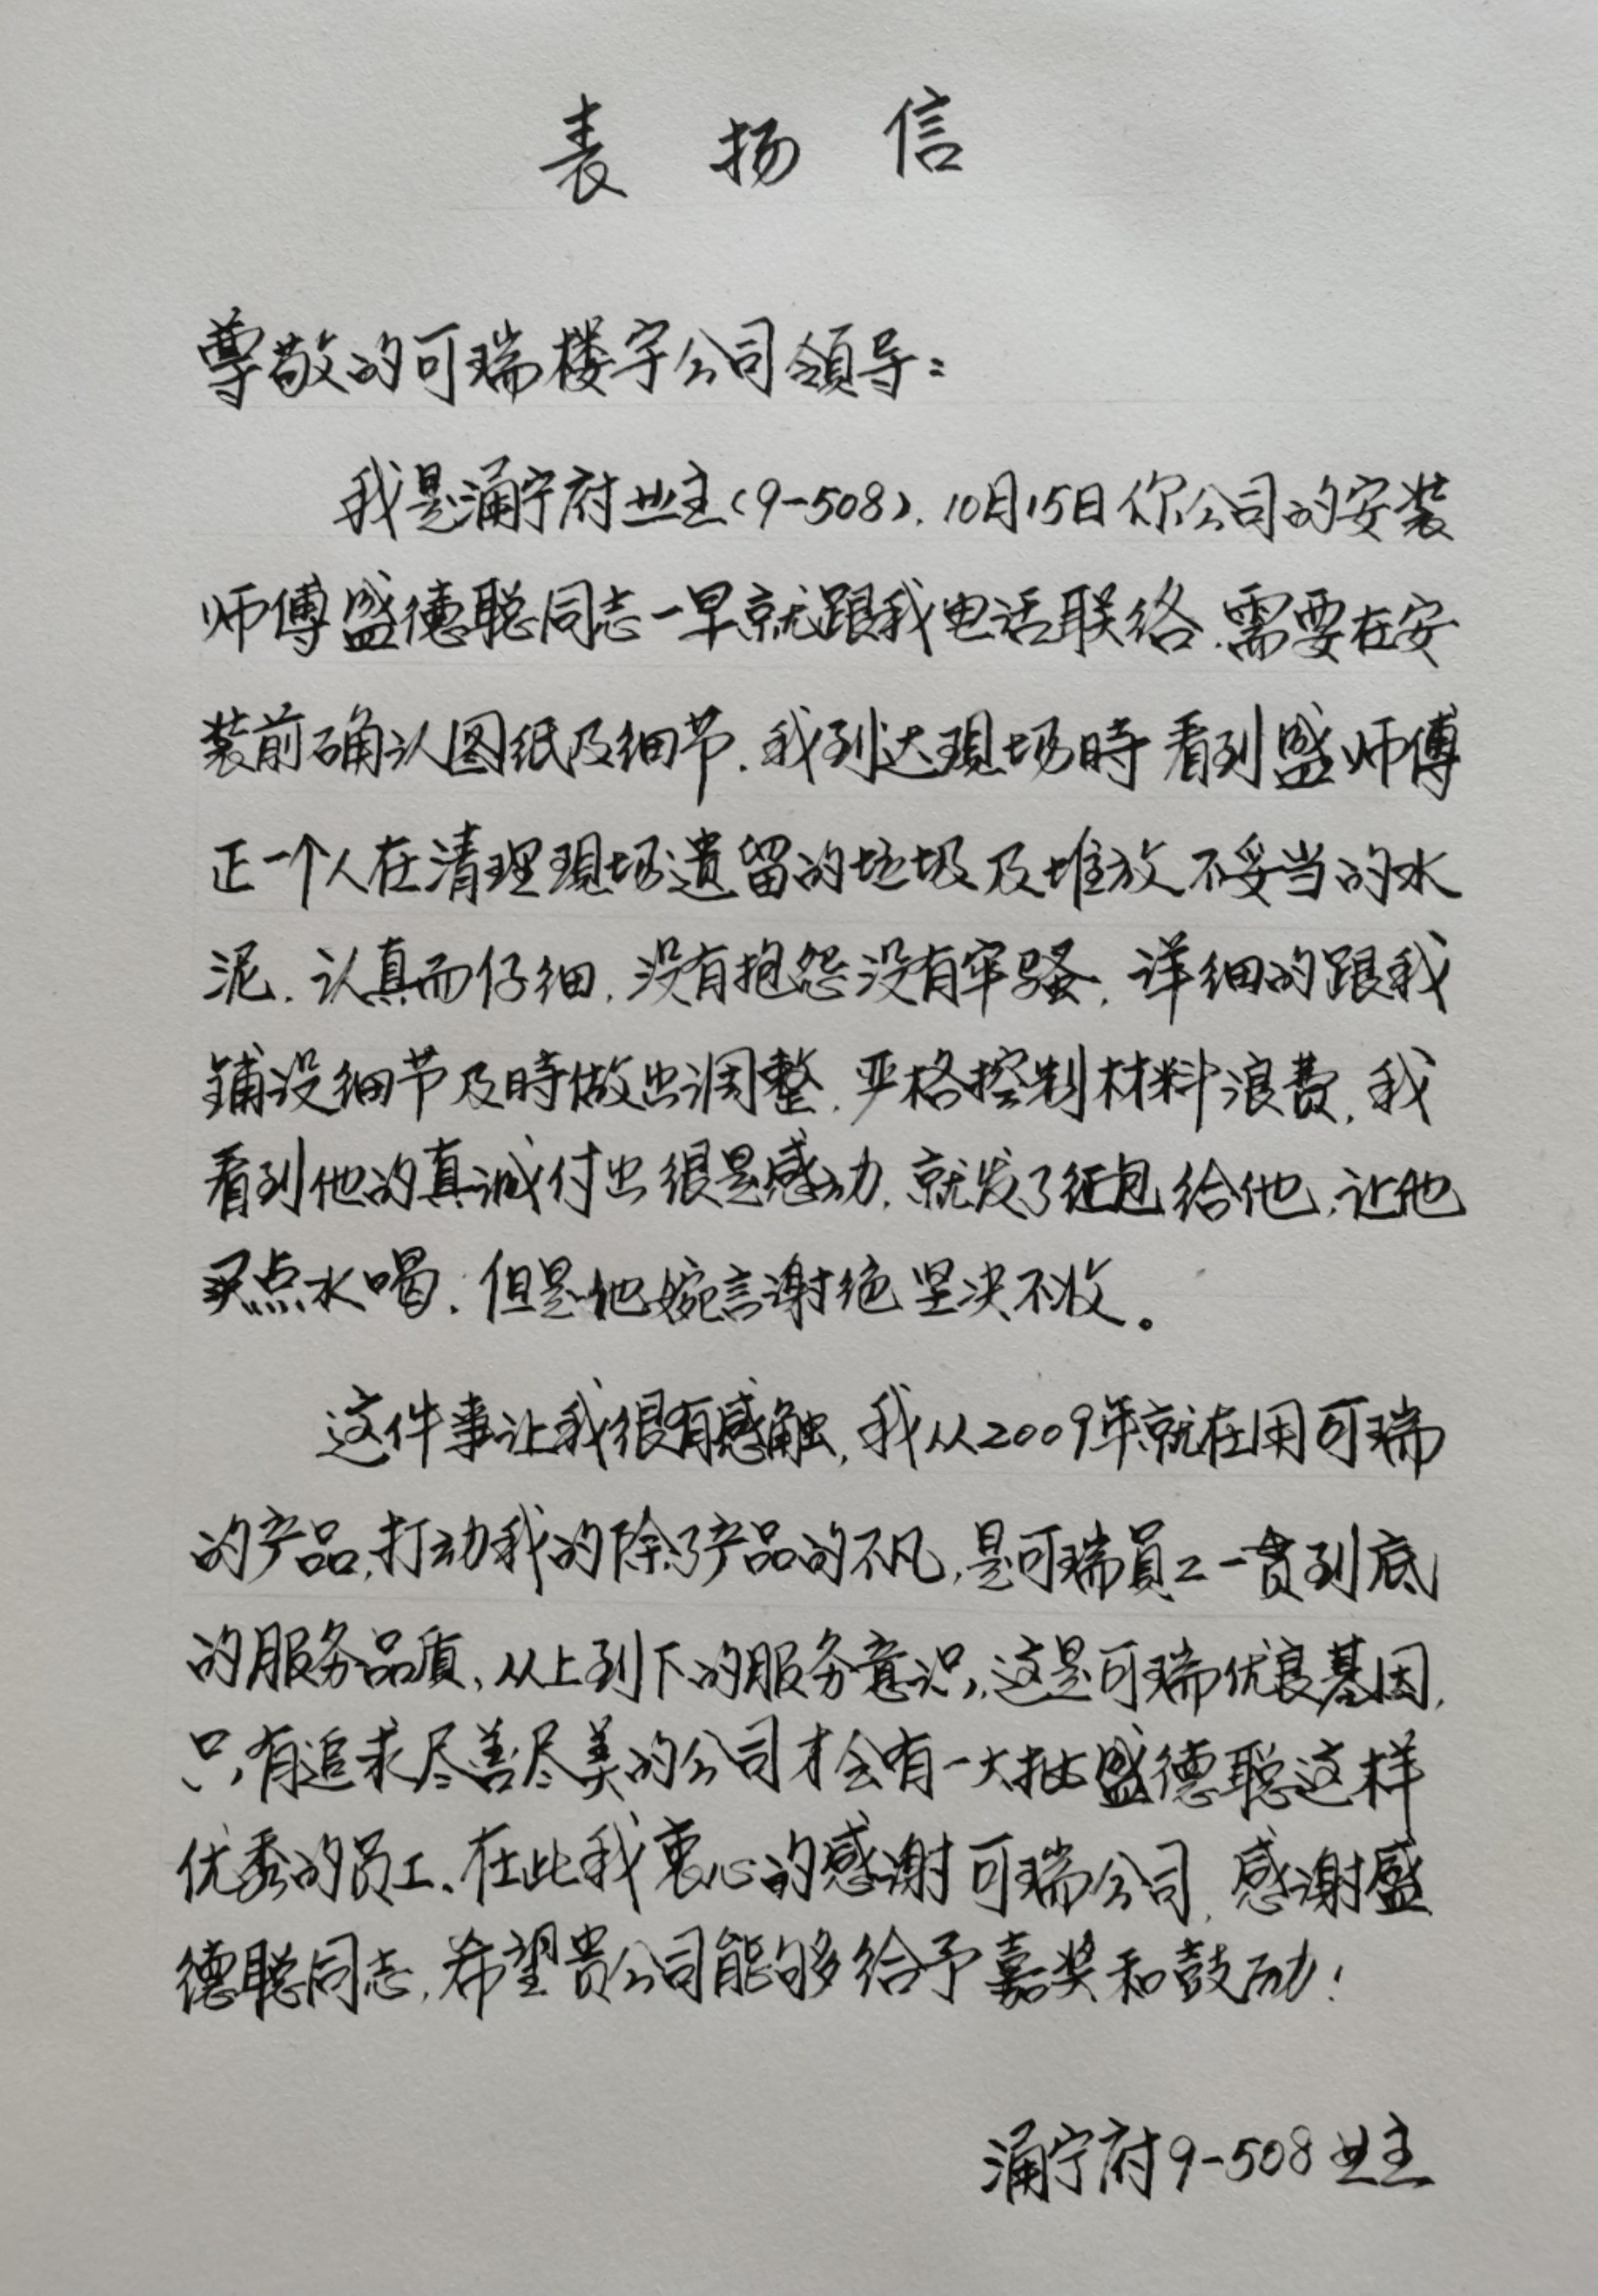 表扬信
尊敬的可瑞楼宇公司领导：
我是涌宁府业主(9-508)，10月15日你公司的安装
师傅盛德聪同志一早就跟我电话联络，需要在安
装前确认图纸及细节，我到达現场時看到盛师傅
正一个人在清理現场遗留的垃圾及堆放不妥当的水
泥，认真而仔细，没有抱怨没有牢骚，详细的跟我
铺设细节及時做出调整，严格控制材料浪费，我
看到他的真诚付出很是感动，就发了红包给他，让他
买点水喝，但是他婉言谢绝坚决不收。
这件事让我很有感触，我从2009年就在用可瑞
的产品，打动我的除了产品的不凡，是可瑞員工一贯到底
的服务品质、从上到下的服务意识，这是可瑞优良基因，
只有追求尽善尽美的公司才会有一大批盛德聪这样
优秀的员工、在此我衷心的感谢可瑞公司，感谢盛
德聪同志，希望贵公司能够给予嘉奖和鼓励！
涌宁府9-508业主